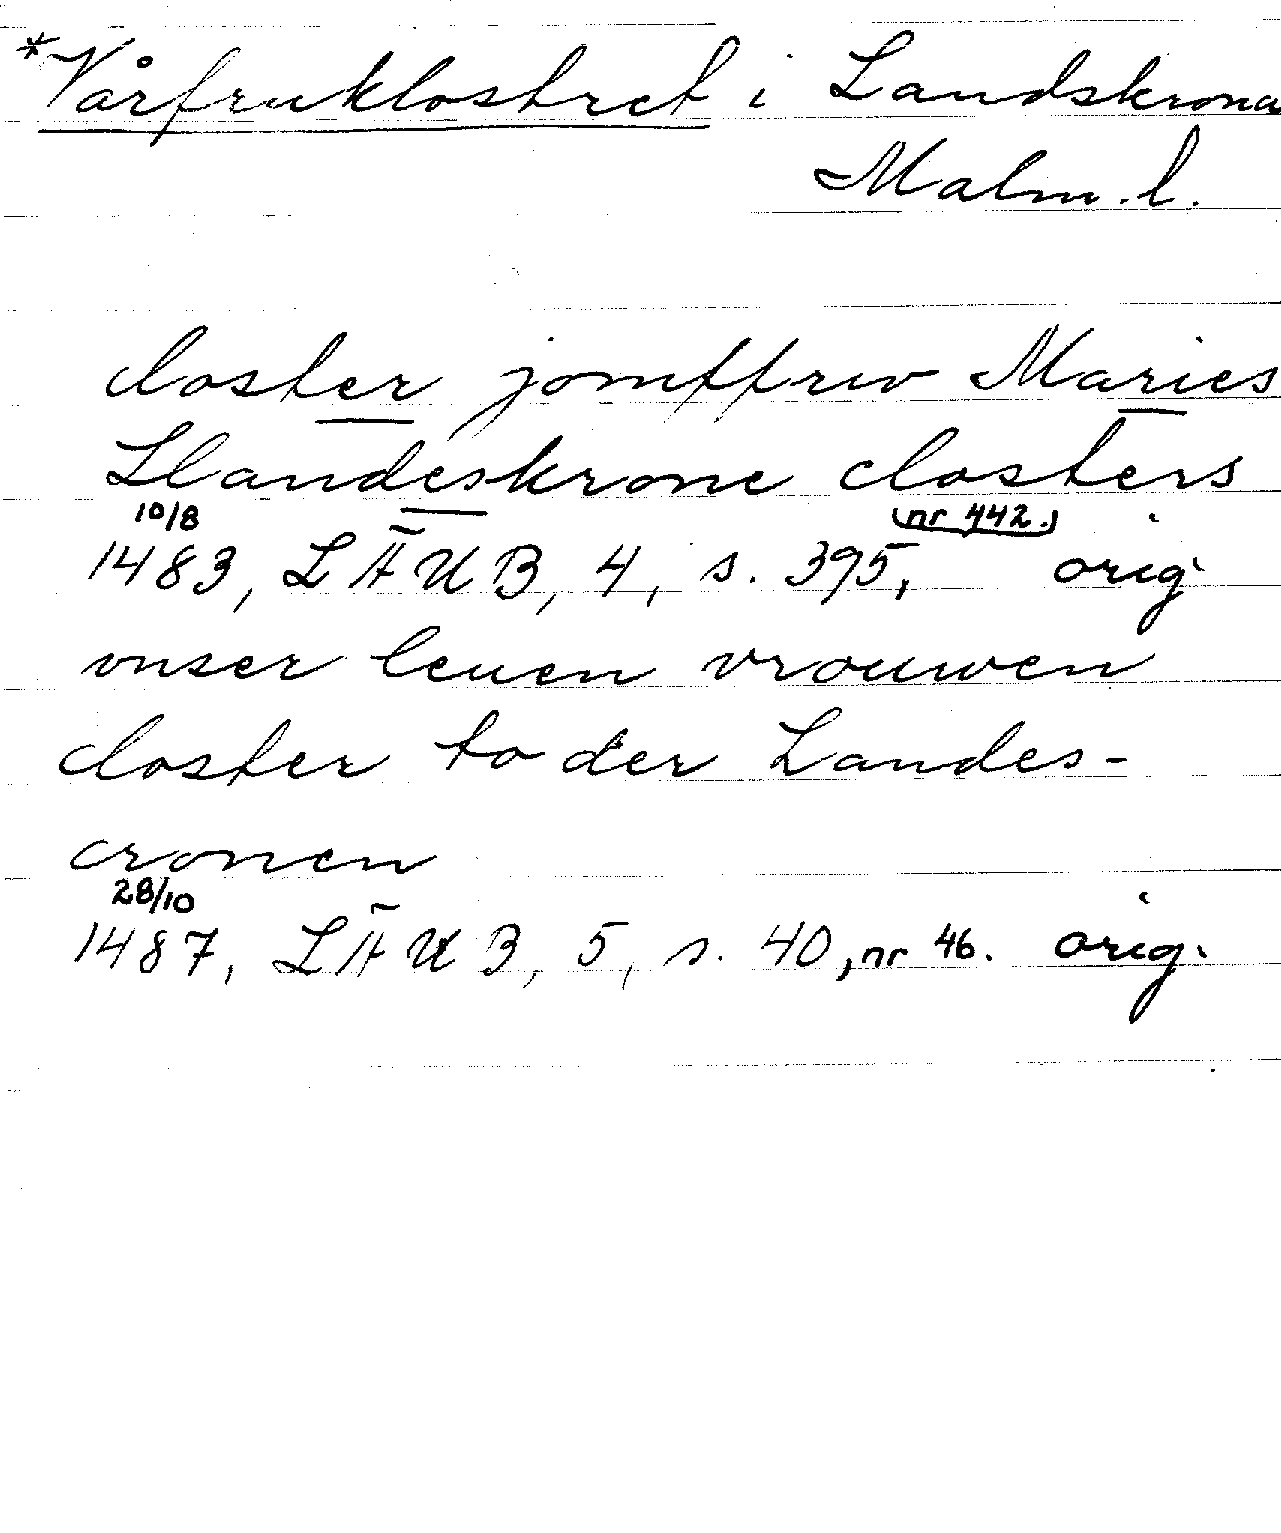 *Vårfruklostret i Landskrona
Malm. l.
closter jomffrw Maries
Llandeskrone closters
10/8 (nr 442.)
1483, LÄUB, 4, s. 395, orig
vnser leuen vrouwen
closter to der Landes-
cronen
28/10
1487, LÄUB, 5, s. 40, nr 46. orig.